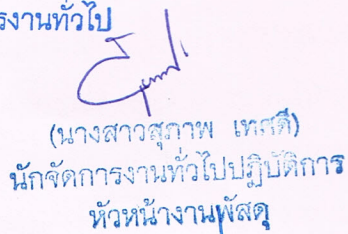 รงานทั่วไป
(นางสาวสุภาพ เทศดี)
นักจัดการงานทั่วไปปฏิบัติการ
หัวหน้างานพัสดุ